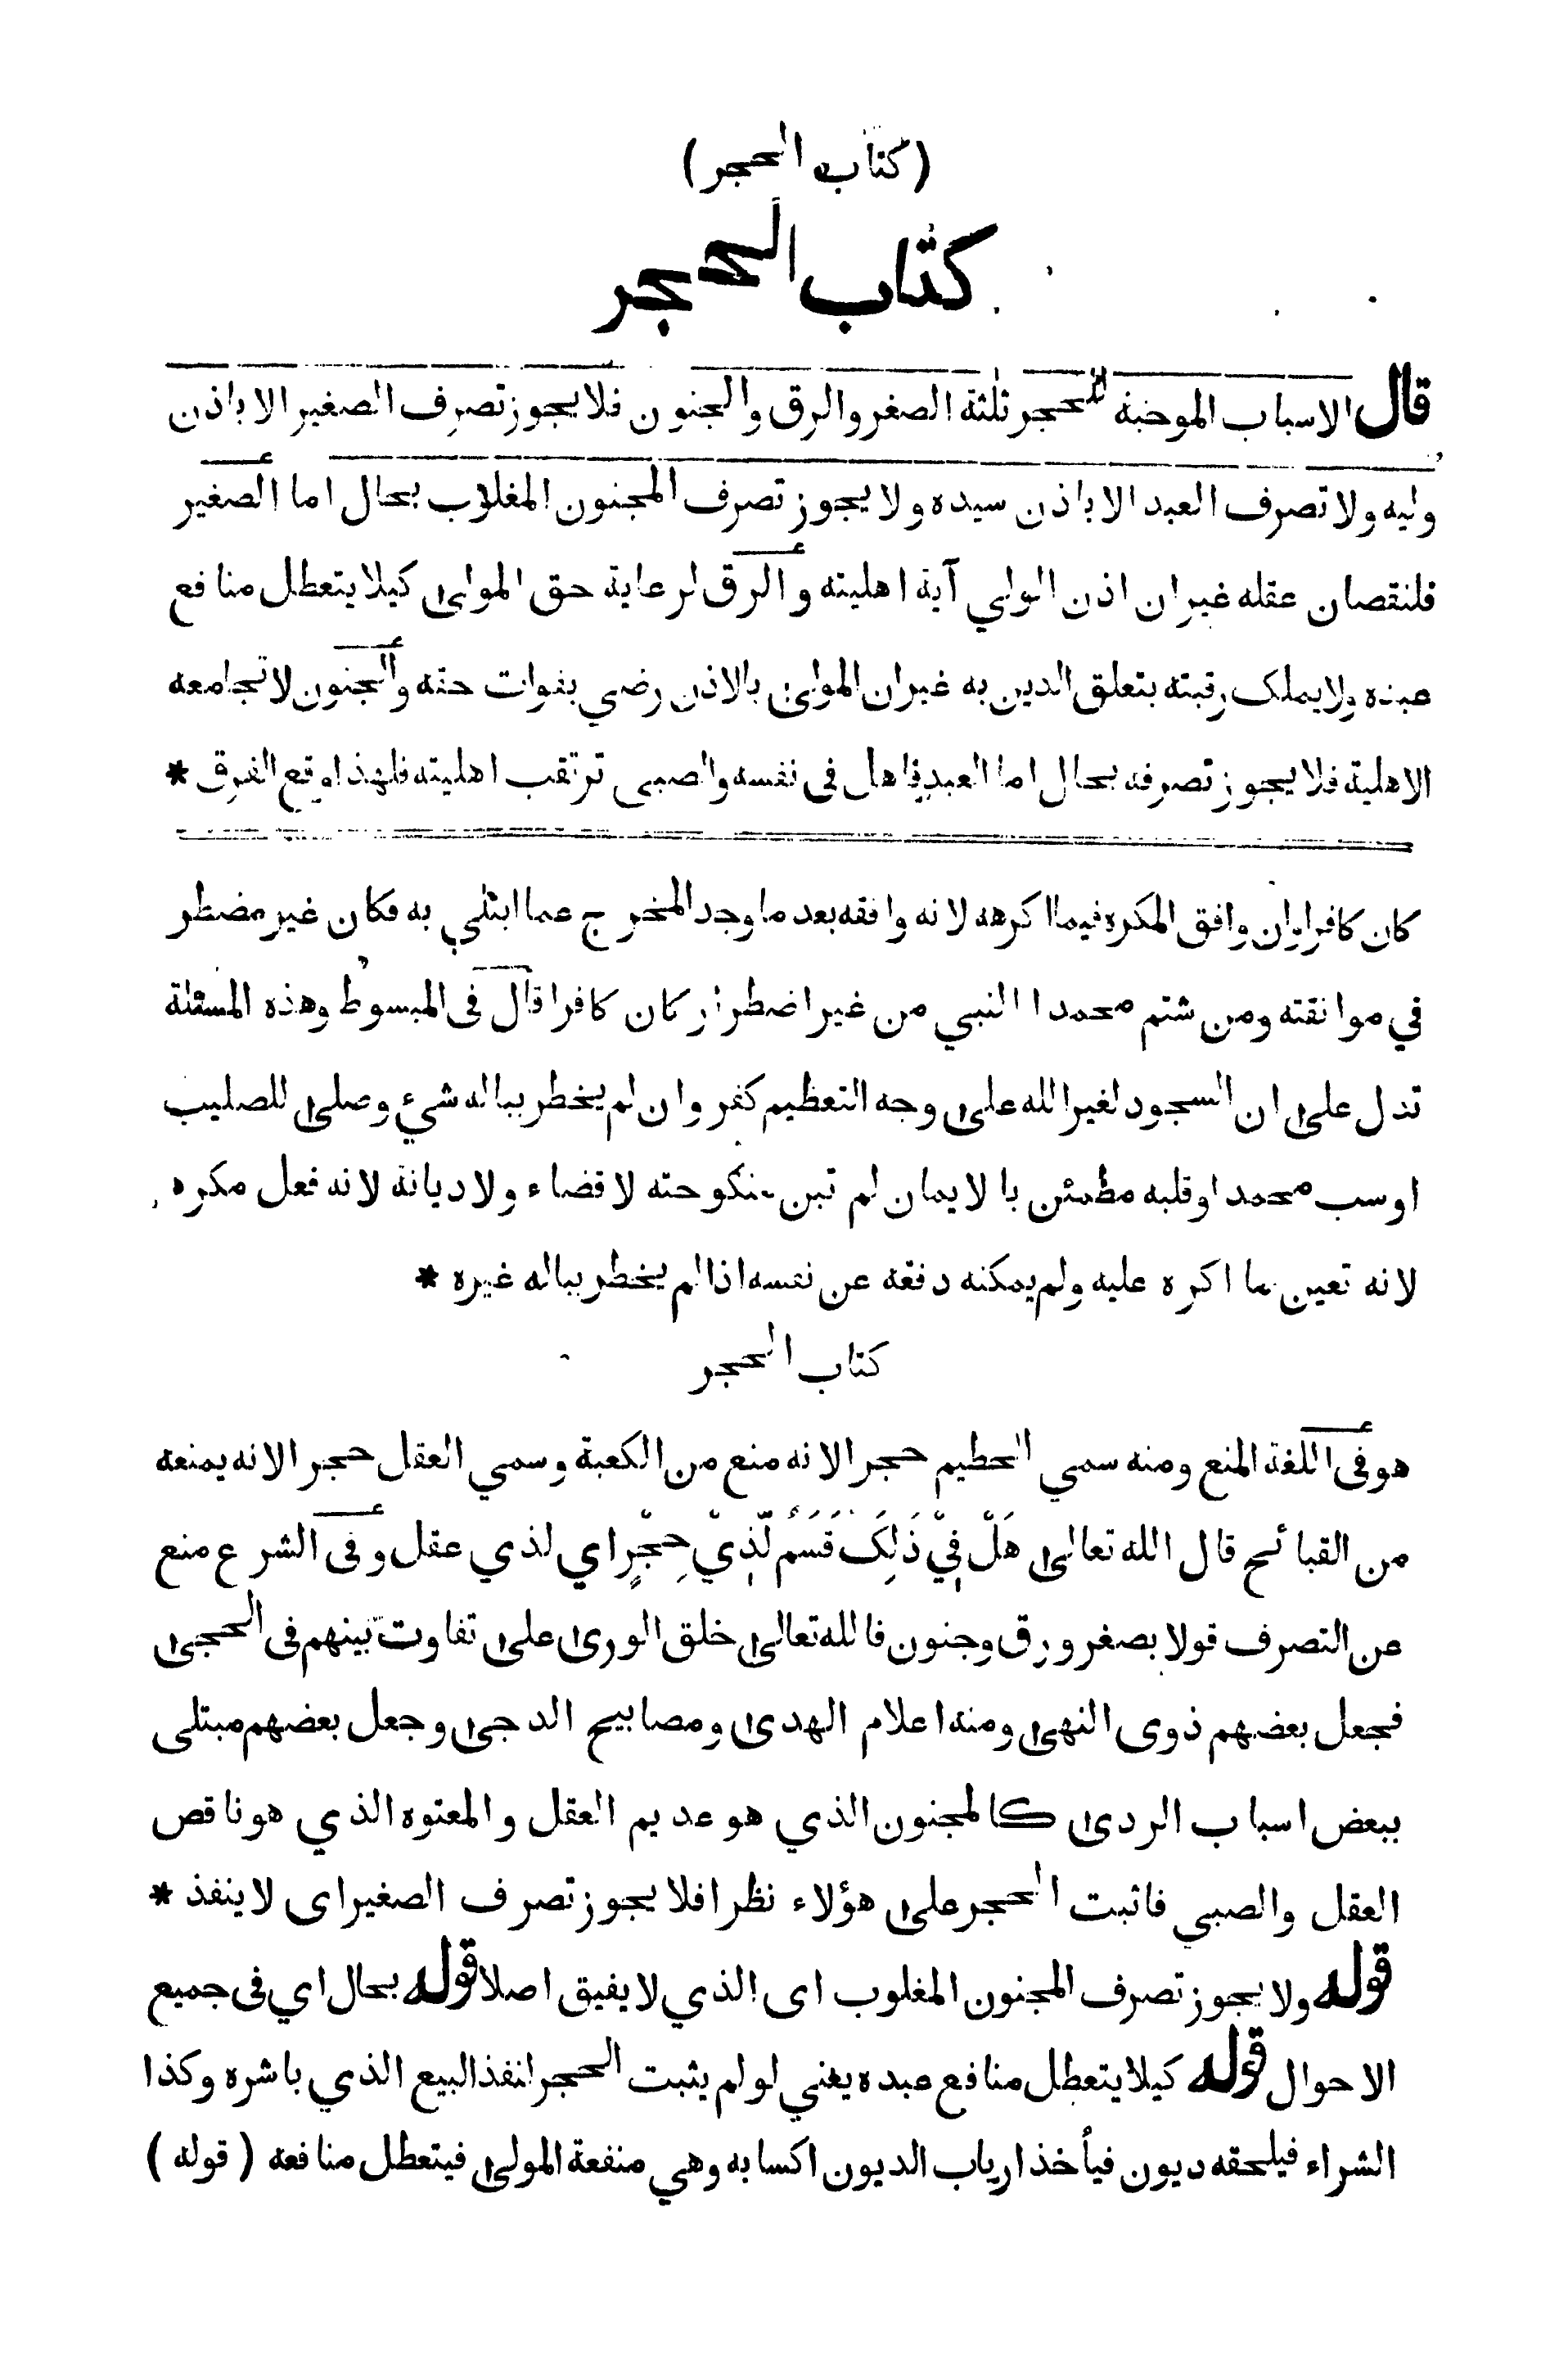 (كتاب الحجر)
كتاب الحجر
قال الاسباب الموجبة للحجر ثلثة الصغر والرق والجنون فلا يجوز تصرف الصغير الا باذن
وليه ولا تصرف العبد الا باذن سيده ولا يجوز تصرف المجنون المغلوب بحال اما الصغير
فلنقصان عقله غير ان اذن الولي آية اهليته والرق لرعاية حق المولى كيلا يتعطل منافع
عبده ولا يملك رقبته بتعلق الدين به غير ان المولى بالاذن رضي بفوات حقه والجنون لا تجامعه
الاهلية فلا يجوز تصرفه بحال اما العبد فاهل فى نفسه والصبى ترتقب اهليته فلهذا وقع الفرق *
كان كافرا وان وافق المكره فيما اكرهه لانه وافقه بعد ما وجد المخرج عما ابتلي به فكان غير مضطر
في موافقته ومن شتم محمدا النبي من غير اضطرار كان كافرا قال فى المبسوط وهذه المسئلة
تدل على ان السجود لغير الله على وجه التعظيم كفر وان لم يخطر بباله شيء وصلى للصليب
او سب محمدا وقلبه مطمئن بالايمان لم تبن منكوحته لا قضاء ولا ديانة لانه فعل مكره
لانه تعين ما اكره عليه ولم يمكنه دفعه عن نفسه اذا لم يخطر بباله غيره *
كتاب الحجر
هو فى اللغة المنع ومنه سمي الحطيم حجرا لانه منع من الكعبة وسمي العقل حجرا لانه يمنعه
من القبائح قال الله تعالى هَلْ فِيْ ذَلِكَ قَسَمٌ لِّذِيْ حِجْرٍ اي لذي عقل وفى الشرع منع
عن التصرف قولا بصغر ورق وجنون فالله تعالى خلق الورى على تفاوت بينهم فى الحجى
فجعل بعضهم ذوى النهى ومنه اعلام الهدى ومصابيح الدجى وجعل بعضهم مبتلى
ببعض اسباب الردى كالمجنون الذي هو عديم العقل والمعتوه الذي هو ناقص
العقل والصبي فاثبت الحجر على هؤلاء نظرا فلا يجوز تصرف الصغير اى لا ينفذ *
قوله ولا يجوز تصرف المجنون المغلوب اى الذي لا يفيق اصلا قوله بحال اي فى جميع
الاحوال قوله كيلا يتعطل منافع عبده يعني لو لم يثبت الحجر لنفذ البيع الذي باشره وكذا
الشراء فيلحقه ديون فيأخذ ارباب الديون اكسابه وهي منفعة المولى فيتعطل منافعه (قوله)